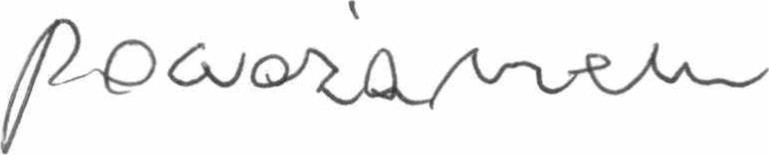 poważaniem